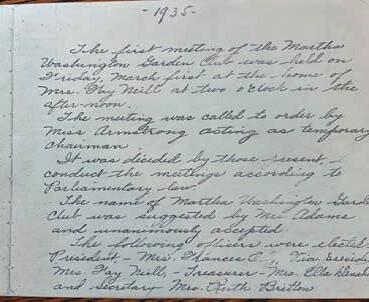 -1935-
The first meeting of the Martha
Washington Garden Club was held on
Friday, March first at the home of
Mrs. Fay Neill at two o'clock in the
after-noon.
The meeting was called to order by
Miss Armstrong acting as temporary
chairman
It was decided by those present,
conduct the meetings according to
Parliamentary law.
The name of Martha Washington Garde
Club was suggested by Adams
and unanimously accepted.
The following officers were elected
President, - Mrs. Frances
Mrs. Fay Neill, - Treasurer - Mrs. Ella
and Secretary Mrs. Ruth Britton